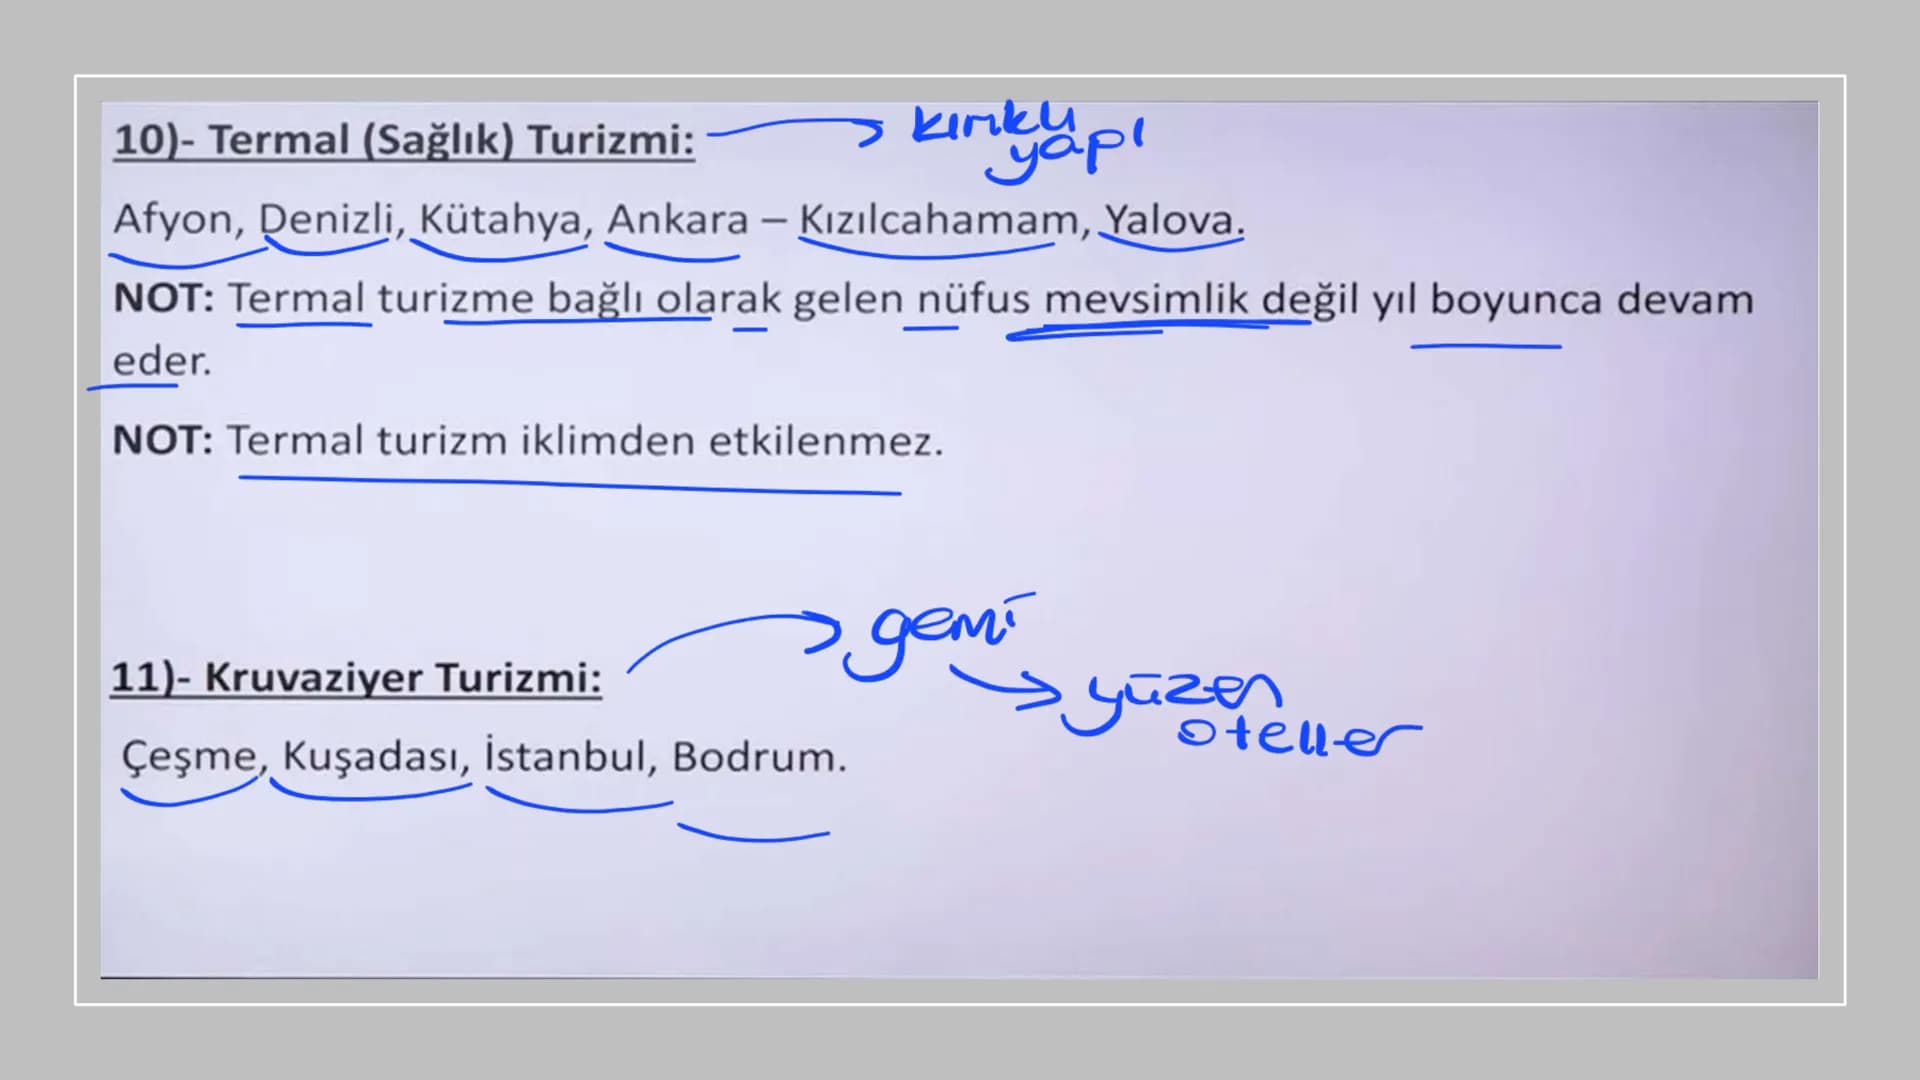 10)- Termal (Sağlık) Turizmi: kırıklı
yapı
Afyon, Denizli, Kütahya, Ankara – Kızılcahamam, Yalova.
NOT: Termal turizme bağlı olarak gelen nüfus mevsimlik değil yıl boyunca devam
eder.
NOT: Termal turizm iklimden etkilenmez.
gemi
11)- Kruvaziyer Turizmi: yüzen
oteller
Çeşme, Kuşadası, İstanbul, Bodrum.